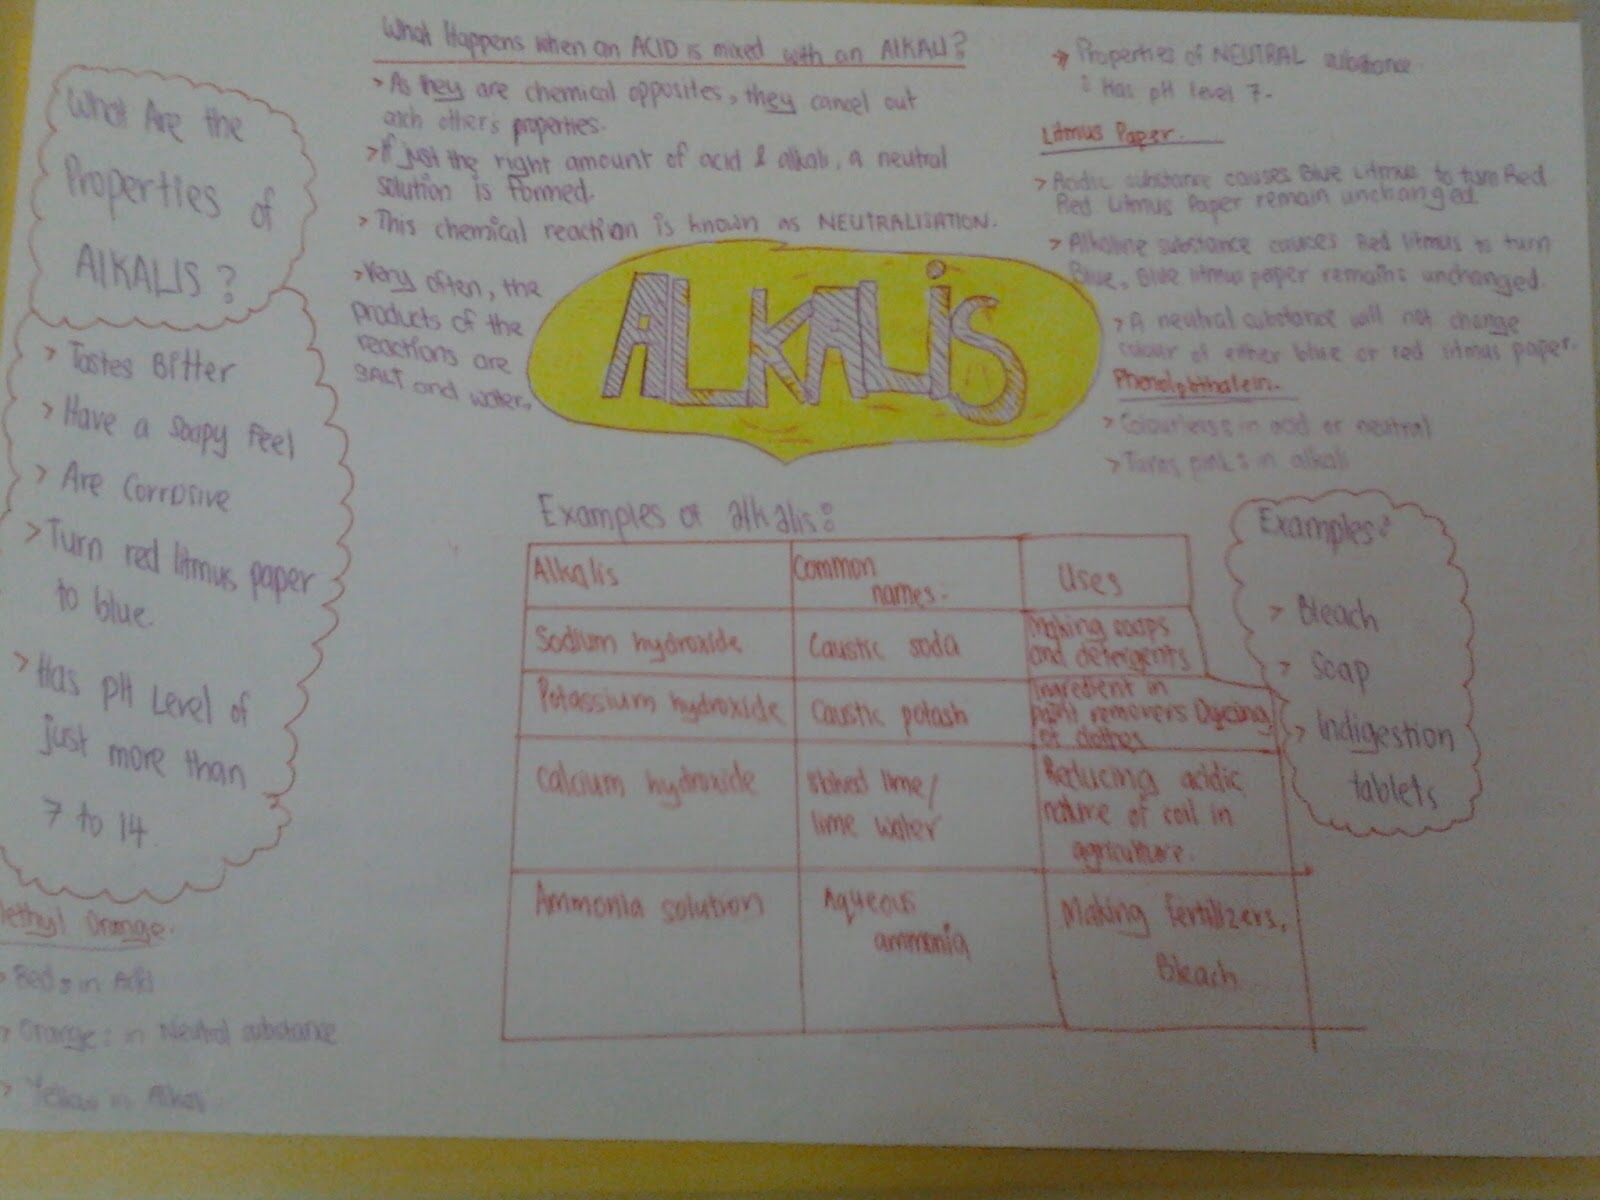 What Are the
Properties of
AlKALIS?
> Tastes Bitter
> Have a Soapy Feel
> Are Corrosive
> Turn red litmus paper
to blue.
> Has pH Level of
just more than
7 to 14
Methyl Orange.
> Red: in Acid
> Orange: in Neutral substance
> Yellow in Alkali
What Happens when an ACID is mixed with an AlKALI?
> As they are chemical opposites, they cancel out
each other's properties.
> If just the right amount of acid & alkali, a neutral
solution is formed.
> This chemical reaction is known as NEUTRALISATION.
> Very often, the
products of the
reactions are
SALT and water.
ALKALiS
> Properties of NEUTRAL substance
: Has pH level 7.
Litmus Paper.
> Acidic substance causes Blue Litmus to turn Red
Red Litmus Paper remain unchanged
> Alkaline substance causes Red litmus to turn
Blue, Blue litmus paper remains unchanged.
> A neutral substance will not change
colour of either blue or red litmus paper.
Phenolphthalein.
> Colourless: in acid or neutral
> Turns pink: in alkali
Examples of alkalis:
Alkalis Common names. Uses
Sodium hydroxide Caustic soda Making soaps
and detergents
Potassium hydroxide Caustic potash Ingredient in
paint removers Dyeing
of clothes
Calcium hydroxide Slaked lime/ Reducing acidic
lime water nature of soil in
agriculture.
Ammonia solution Aqueous Making Fertilizers,
ammonia Bleach
Examples:
> Bleach
> Soap
> Indigestion
tablets